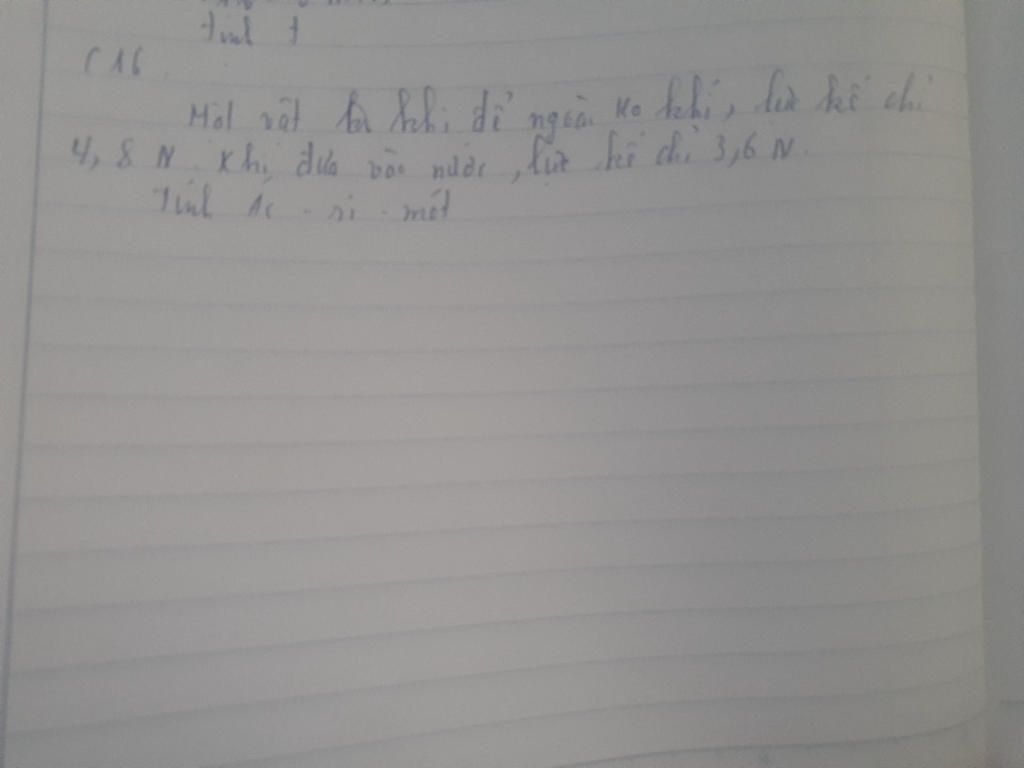 tính t
C16
Một vật ta khi để ngoài ko khí, lực kế chỉ
4,8 N. Khi đưa vào nước, lực kế chỉ 3,6 N.
Tính Ác - si - mét